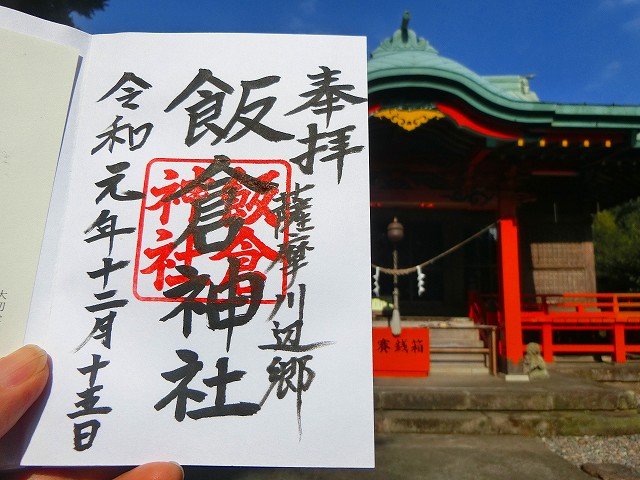 奉拝
薩摩川辺郷
飯倉神社
飯倉
神社
令和元年十二月十五日
賽銭箱